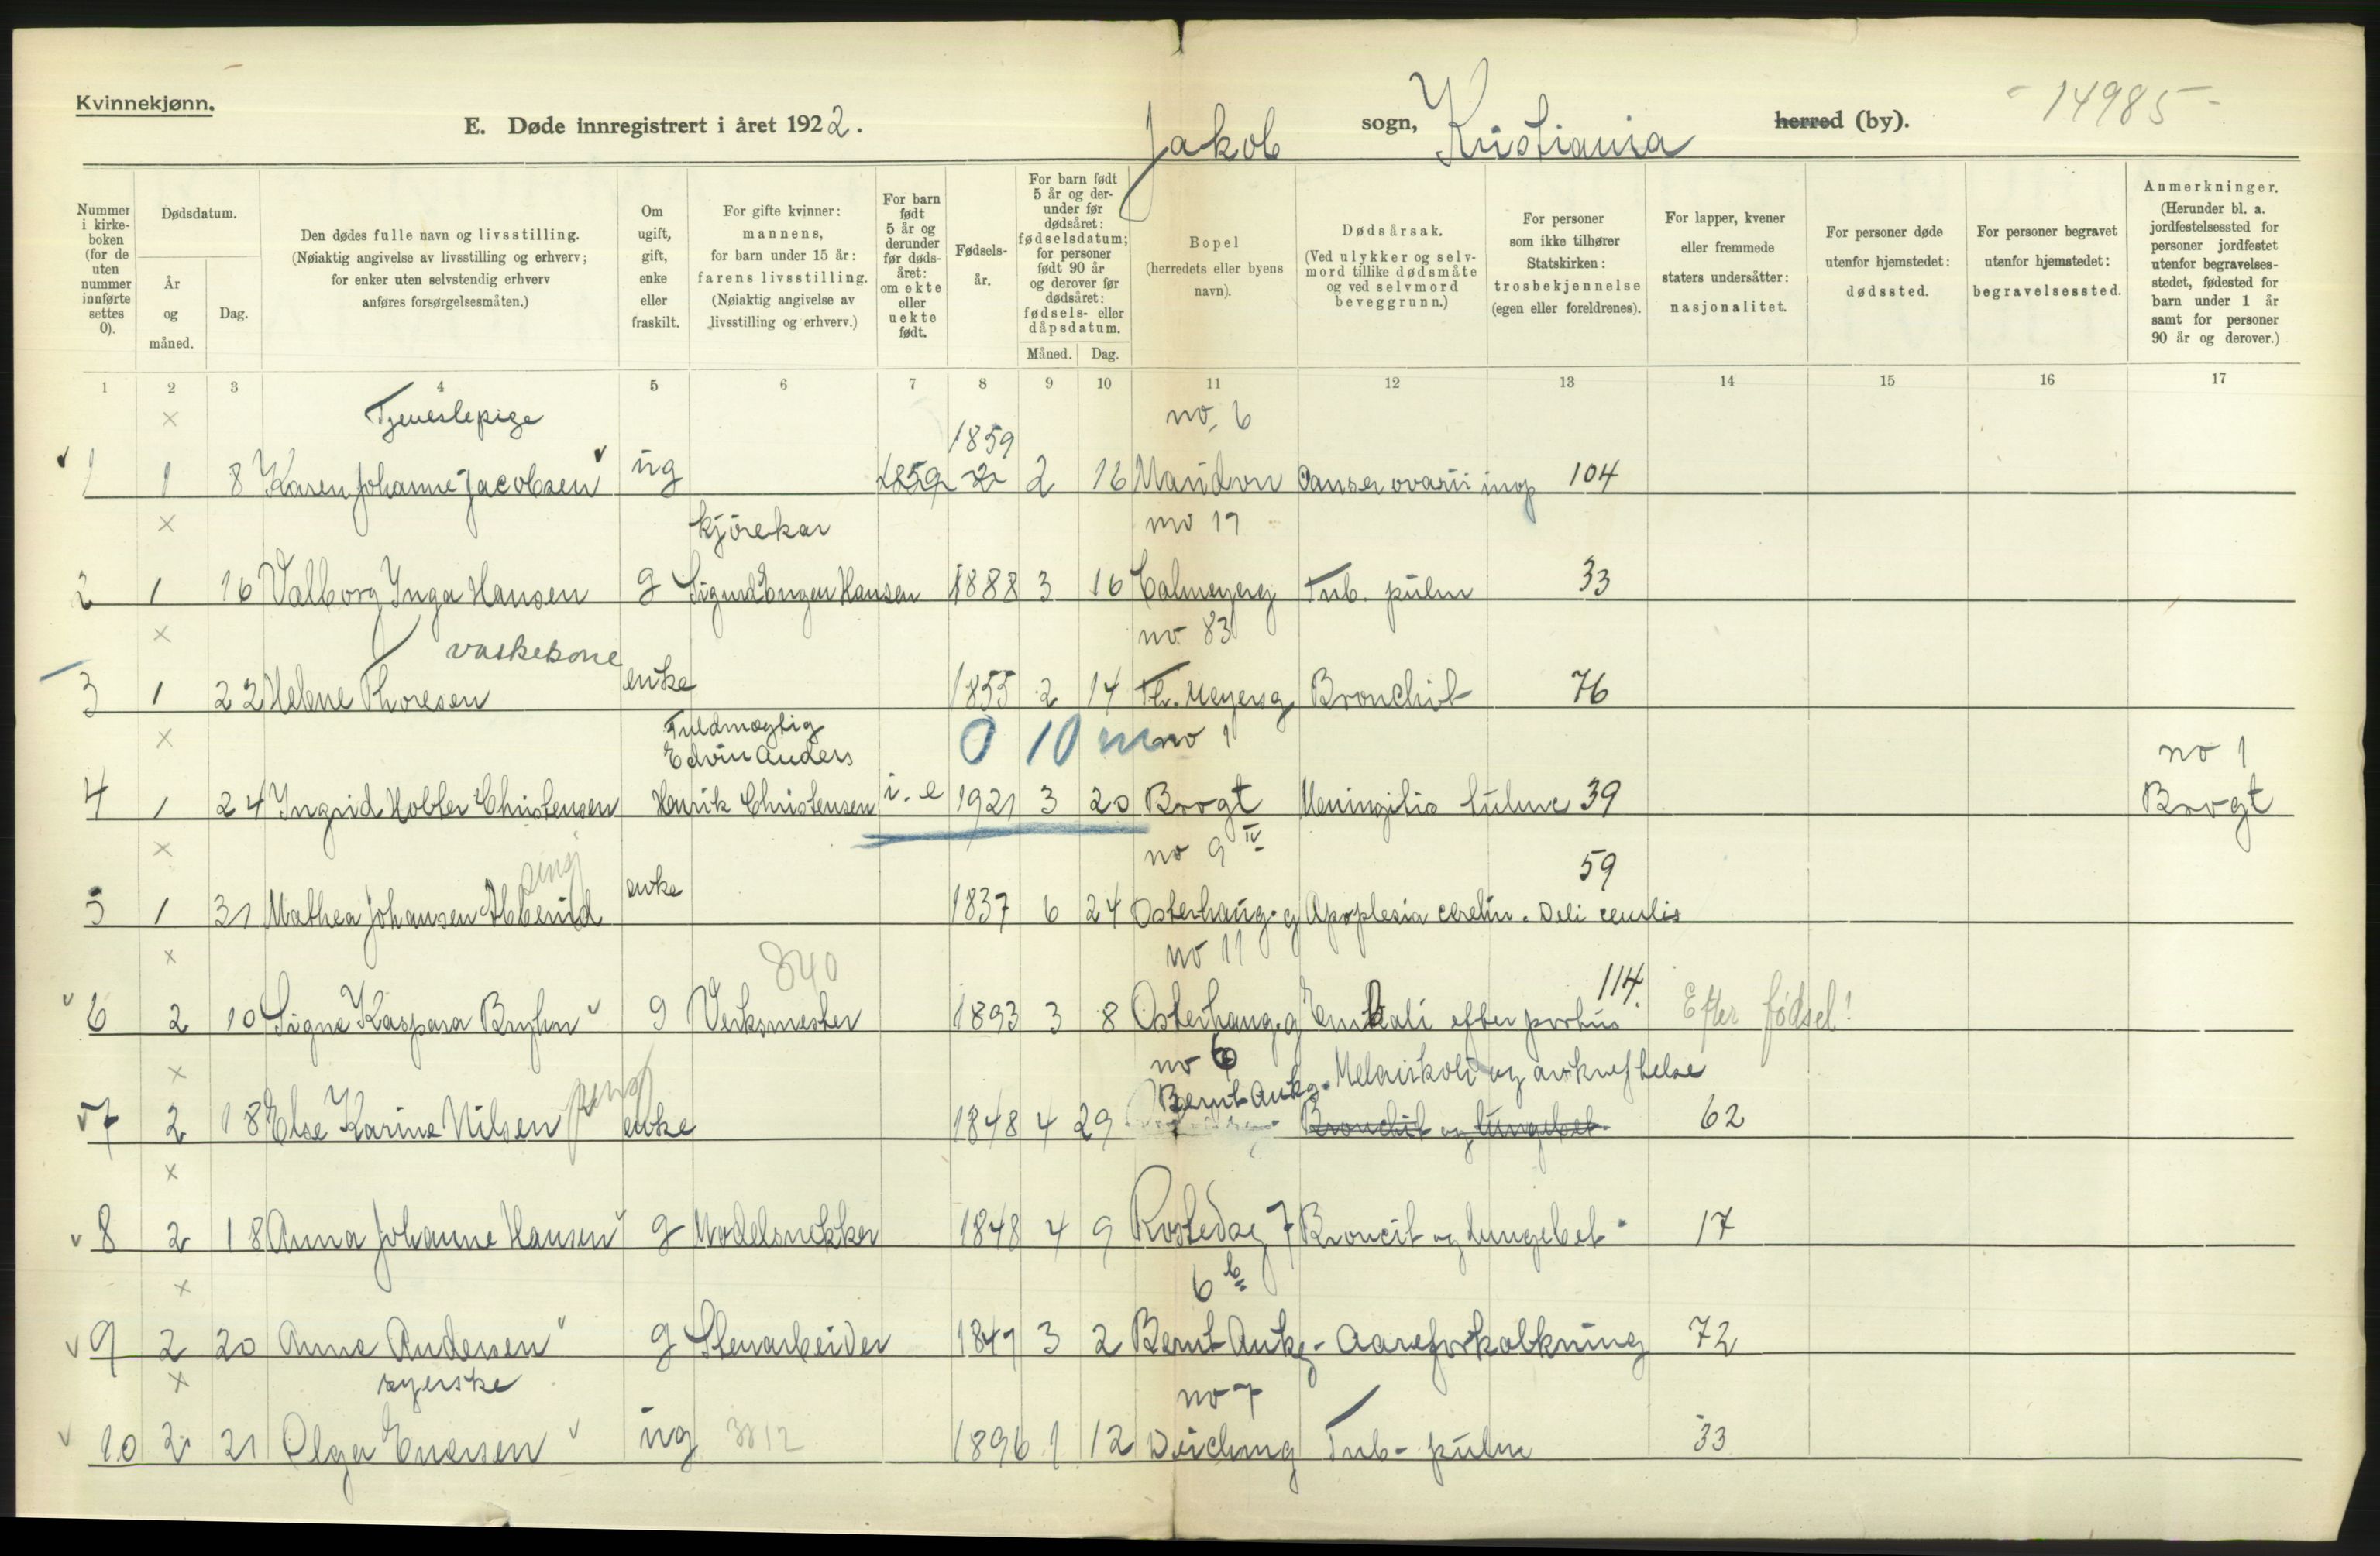 Kvinnekjønn.
E. Døde innregistrert i året 1922. Jakob sogn, Kristiania herred (by). - 14985 -
Nummer i kirke-boken (for de uten nummer innførte settes 0).
Dødsdatum.
År og måned.
Dag.
Den dødes fulle navn og livsstilling. (Nøiaktig angivelse av livsstilling og erhverv; for enker uten selvstendig erhverv anføres forsørgelsesmåten.)
Om ugift, gift, enke eller fraskilt.
For gifte kvinner: mannens, for barn under 15 år: farens livsstilling. (Nøiaktig angivelse av livsstilling og erhverv.)
For barn født 5 år og derunder før døds-året: om ekte eller uekte født.
Fødsels-år.
For barn født 5 år og der-under før dødsåret: fødselsdatum; for personer født 90 år og derover før dødsåret: fødsels- eller dåpsdatum.
Måned. Dag.
Bopel (herredets eller byens navn).
Dødsårsak. (Ved ulykker og selv-mord tillike dødsmåte og ved selvmord beveggrunn.)
For personer som ikke tilhører Statskirken: trosbekjennelse (egen eller foreldrenes).
For lapper, kvener eller fremmede staters undersåtter: nasjonalitet.
For personer døde utenfor hjemstedet: dødssted.
For personer begravet utenfor hjemstedet: begravelsessted.
Anmerkninger. (Herunder bl. a. jordfestelsessted for personer jordfestet utenfor begravelses-stedet, fødested for barn under 1 år samt for personer 90 år og derover.)
1 2 3 4 5 6 7 8 9 10 11 12 13 14 15 16 17
x Tjenestepige 1859 no. 6
1 1 8 Karen Johanne Jacobsen ug 1859 2 2 16 Maridvn Canser ovarii 104
x kjørekar no 17
2 1 16 Valborg Inga Hansen g Sigurd Hansen 1888 3 16 Calmeyerg Tub. pulm 33
x vaskekone no 83
3 1 22 Helene Thoresen enke 1855 2 14 Th. Meyersg Bronchit 76
x Fuldmægtig Edvin Anders 0 10 m no 1 no 1
4 1 24 Ingrid Holter Christensen Henrik Christensen i. e 1921 3 20 Brogt Meningitis tuberc 39 Brogt
x no 9 IV 59
5 1 31 Mathea Johansen enke 1837 6 24 Osterhaug. g Apoplesia cerebri.
x 840 no 11
6 2 10 Signe Kaspara Bryhn g Verksmester 1893 3 8 Osterhaug. g Emboli efter partus 114. Efter fødsel!
x no 6 Bernt Ankg. Melankoli og avkreftelse
7 2 18 Else Karine Nilsen enke 1848 4 29 Bronchit og lungebet. 62
x
8 2 18 Anna Johanne Hansen g Modelsnekker 1848 4 9 Rostedsg 7 Broncit og lungebet. 17
x 6 b
9 2 20 Anne Andersen g Stenarbeider 1847 3 2 Bernt Ankg - Aareforkalkning 72
x syerske no 7
10 2 21 Olga Enersen ug 1896 1 12 Deichmg Tub - pulm 33